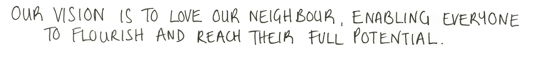 OUR VISION IS TO LOVE OUR NEIGHBOUR, ENABLING EVERYONE
TO FLOURISH AND REACH THEIR FULL POTENTIAL.